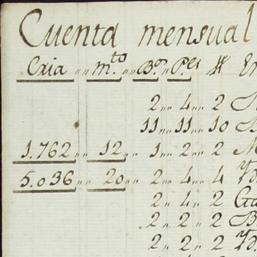 Cuenta mensual
Cria ,, m.to ,, B.s ,, P.es
2 ,, 4 ,, 2
11 ,, 11 ,, 10
1.762 ,, 12 ,, 1 ,, 2 ,, 2
5.036 ,, 20 ,, 2 ,, 4 ,, 4
2 ,, 4 ,, 2
2 ,, 2 ,, 2
2 ,, 2 ,, 2